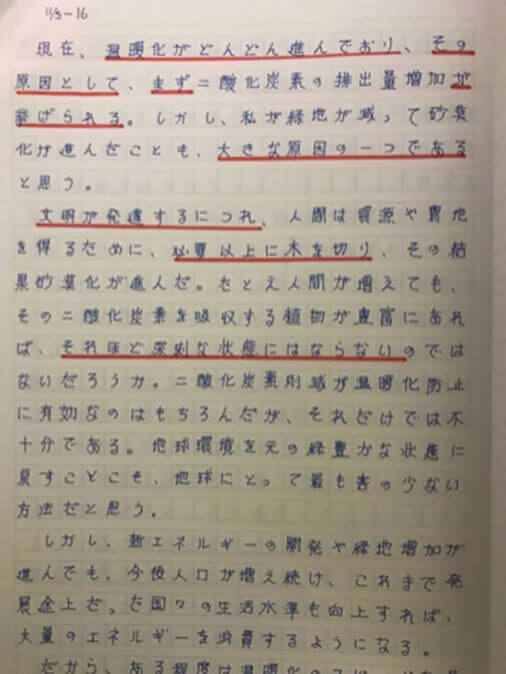 11/3-16
現在、温暖化がどんどん進んでおり、その
原因として、まず二酸化炭素の排出量増加が
挙げられる。しかし、私が緑地が減って砂漠
化が進んだことも、大きな原因の一つである
と思う。
文明が発達するにつれ、人間は資源や農地
を得るために、必要以上に木を切り、その結
果砂漠化が進んだ。たとえ人間が増えても、
その二酸化炭素を吸収する植物が豊富にあれ
ば、それほど深刻な状態にはならないのでは
ないだろうか。二酸化炭素削減が温暖化防止
に有効なのはもちろんだが、それだけでは不
十分である。地球環境を元の緑豊かな状態に
戻すことこそ、地球にとって最も害の少ない
方法だと思う。
しかし、新エネルギーの開発や緑地増加が
進んでも、今後人口が増え続け、これまで発
展途上だった国々の生活水準も向上すれば、
大量のエネルギーを消費するようになる。
だから、ある程度は温暖化の